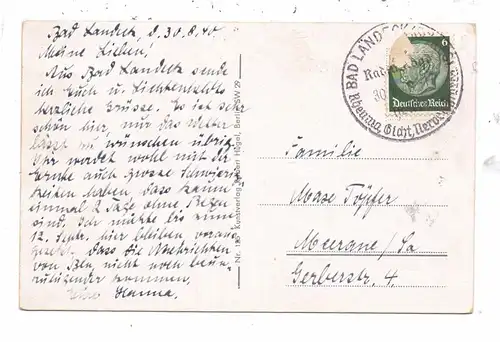 Bad Landeck, d. 30.8.40.
Meine Lieben!
Aus Bad Landeck sende
ich Euch u. Lichtensteins
herzliche Grüsse. Es ist sehr
schön hier, nur das Wetter
lässt zu wünschen übrig.
Ihr werdet wohl mit der
Ernte auch grosse Schwierig-
keiten haben, dass kaum
einmal 2 Tage ohne Regen
sind. Ich möchte bis zum
12. Sept. hier bleiben voraus-
gesetzt, dass die Nachrichten
von nicht noch beun-
ruhigender kommen.
Eure Hanna.
Nr. 187 Kunstverlag Hegel, Berlin SW 29
BAD LANDECK
Rheuma Gicht Nerven
30
6
Deutsches Reich
Familie
Max Töpfer
Meerane/Sa
Gerberstr. 4.